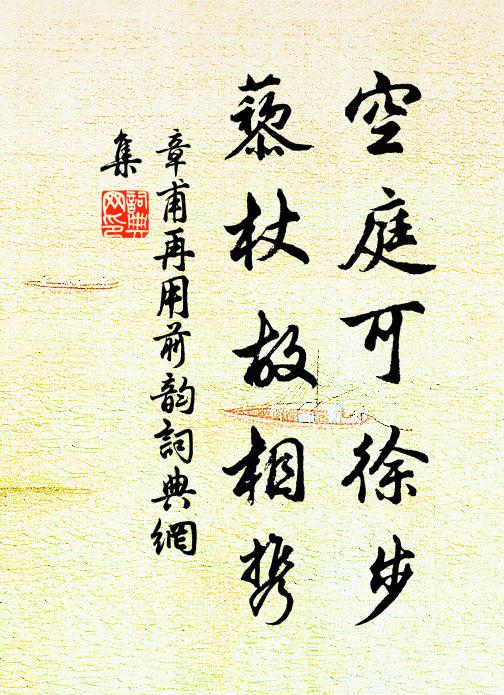 空庭可徐步
藜杖故相携
章甫再用前韵詞典網
集
詞典
网印